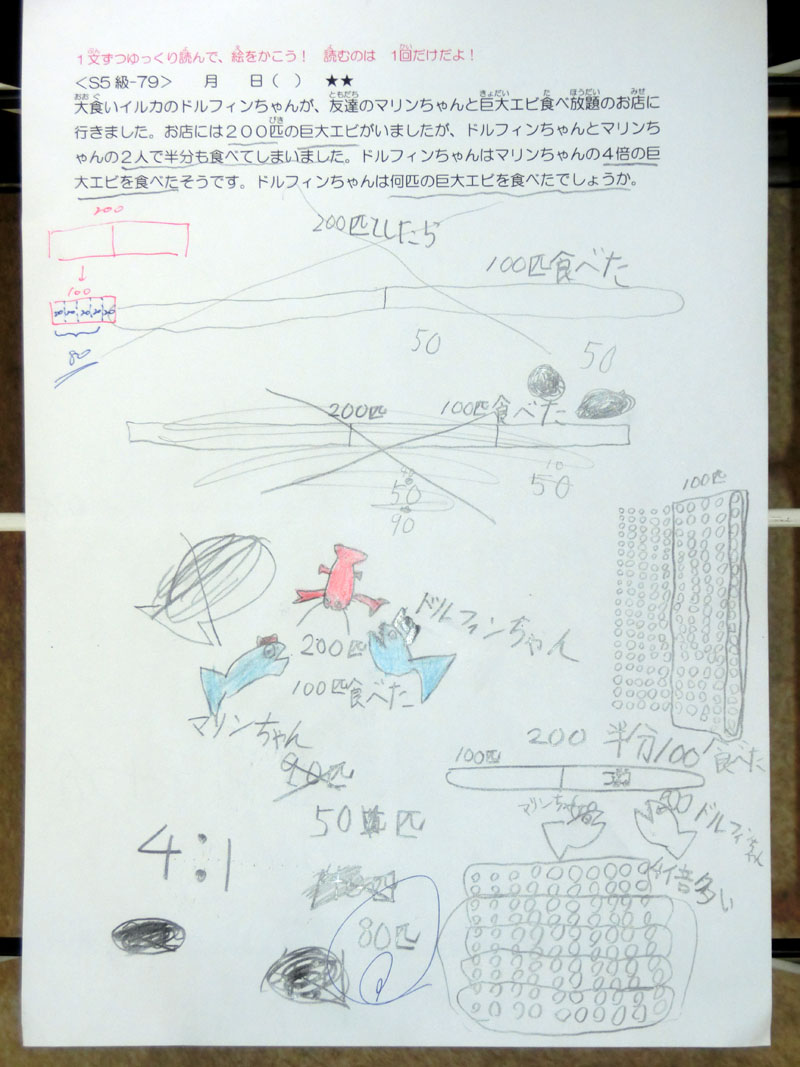 1文ずつゆっくり読んで、絵をかこう！ 読むのは 1回だけだよ！
＜S5級-79＞ 月 日（ ） ★★
大食いイルカのドルフィンちゃんが、友達のマリンちゃんと巨大エビ食べ放題のお店に
行きました。お店には200匹の巨大エビがいましたが、ドルフィンちゃんとマリンち
ゃんの2人で半分も食べてしまいました。ドルフィンちゃんはマリンちゃんの4倍の巨
大エビを食べたそうです。ドルフィンちゃんは何匹の巨大エビを食べたでしょうか。
200
200匹としたら
100匹食べた
100
20 20 20 20 20
80
50
50
200匹
100匹食べた
10
50
50
90
100匹
ドルフィンちゃん
200匹
100匹食べた
マリンちゃん
食べた
200 半分100
100匹
50 匹
マリンちゃん
ドルフィンちゃん
4:1
4倍多い
80匹